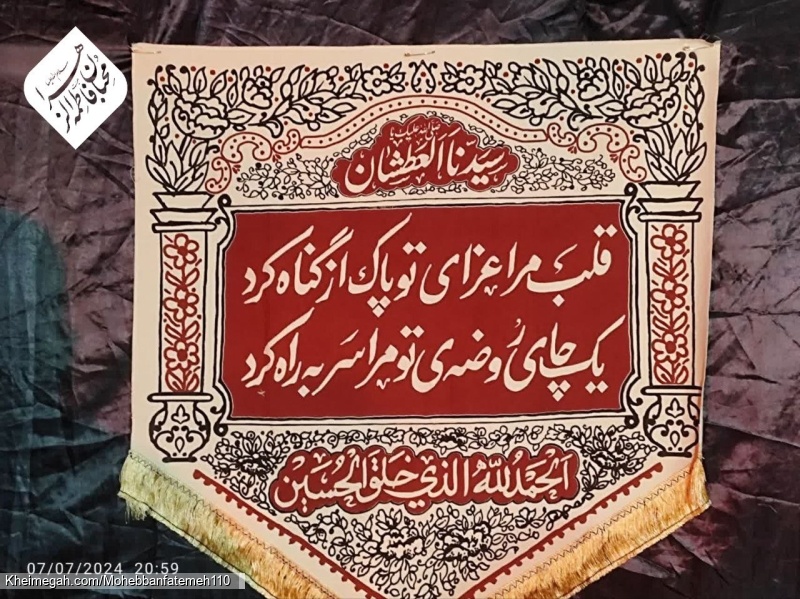 محبان فاطمه الزهرا
صلی الله علیک یا
سیدنا العطشان
قلب مرا عزای تو پاک از گناه کرد
یک چای روضه‌ی تو مرا سر به راه کرد
الحمدلله الذي خلق الحسین
07/07/2024 20:59
Kheimegah.com/Mohebbanfatemeh110